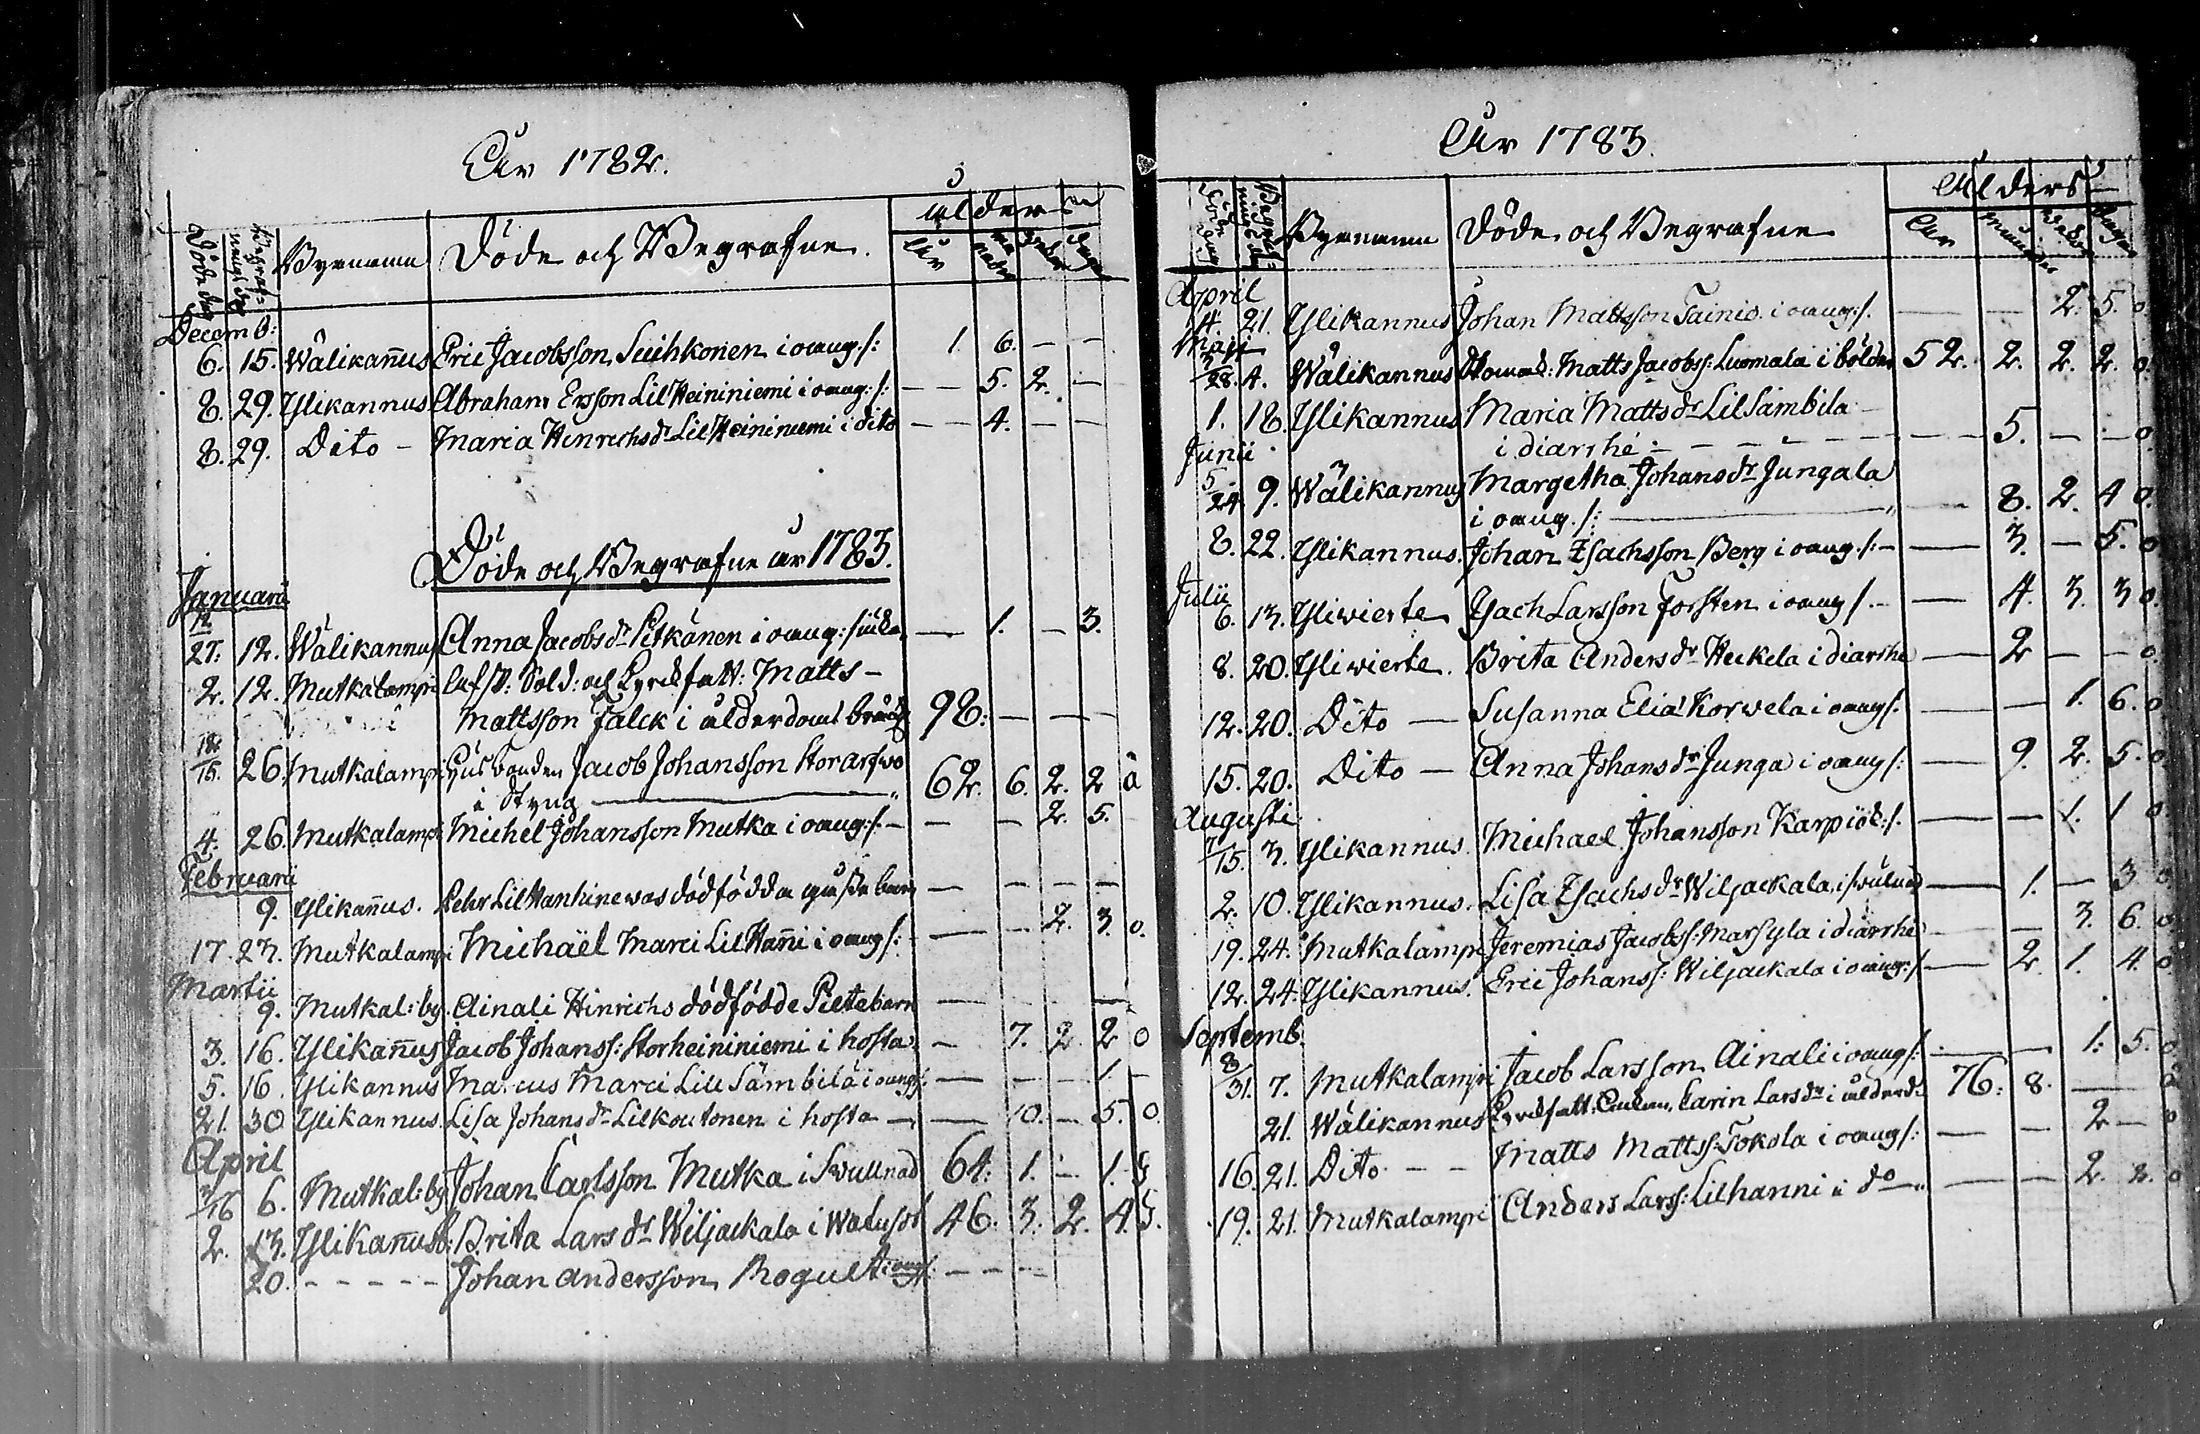 År 1782.
Döde dag
Begrafnings dag
Bynamn
Döde och Begrafne.
ålder
År
månader
Dagar
Decemb:
6. 15. Wälikan̄us Eric Jacobsson Suihkonen i oang:/: 1. 6. — —
8. 29. Ylikannus Abraham Ersson Lil Heininiemi i oang:/: — 5. 2. —
8. 29. Dito — Maria Hinrichsdr Lil Heininiemi i dito — 4. — —
Döde och Begrafne år 1783.
Januarii
12/27. 12. Wälikannus Anna Jacobsdr Pitkänen i oang: — 1. — 3.
2. 12. Mutkalampi Afsk: Sold: och Kyrckfatt: Matts —
Mattsson Falck i ålderdoms bräck 98: — — —
18/15. 26. Mutkalampi Husbonden Jacob Johansson Storarfwo
i Styng — 62. 6. 2. 2 å
4. 26. Mutkalampi Michel Johansson Mutka i oang:/: — — — 2. 5.
Februarii
9. Ylikan̄us. Pehr Lil Hanhinewas dödfödda gosse barn — — — —
17. 23. Mutkalampi Michaël Marci Lil Han̄i i oang/: — — 2. 3. 0.
Martii
9. Mutkal: by. Ainali Hinrichs dödfödde Piltebarn — —
3. 16. Ylikan̄us Jacob Johanss: Storheininiemi i hosta — 7. 2. 2 0
5. 16. Ylikannus Marcus Marci Lill Sämbilä i oang/: — — — 1. —
21. 30 Ylikannus. Lisa Johansdr Lilkoutonen i hosta — 10. — 5. 0.
April
3/16 6. Mutkal: by Johan Carlsson Mutka i Swullnad 64. 1. — 1. G
2. 13. Ylikan̄us Brita Larsdr Wiljackala i Watusot 46. 3. 2. 4. G.
20. — — — — — Johan Andersson Rogult i oang/: — — —
År 1783.
Döde dag
Begrafnings dag
Bynamn
Döde och Begrafne
Ålders
År
månader
wekor
Dagar
April
4. 21. Ylikannus Johan Mattsson Tainio. i oang:/: — — 2. 5. 0
Maji
28. 4. Wälikannus Matts Jacobss: Luomala i bölder 52. 2. 2. 2. 0.
1. 18. Ylikannus Maria Mattsdr Lil Sämbila —
i diarrhé — — — — 5. — — 0
Junii
5/24. 9. Wälikannus Margetha Johansdr Jungala
i oang./: — 8. 2. 4 0.
8. 22. Ylikannus. Johan Isachsson Berg i oang./: — 3. — 5. 0
Julii
6. 13. Yliwierte Isach Larsson Forsten i oang/. — 4. 3. 3 0.
8. 20. Yliwierte. Brita Andersdr Heckela i diarrhe — 2 — — 0.
12. 20. Dito — Susanna Eliæ Korwela i oang/. — — 1. 6. 0
15. 20. Dito — Anna Johansdr Junga i oang/: — 9. 2. 5. 0
Augusti
7/15. 3. Ylikannus. Michael Johansson Karpiöe:/. — — 1. 1 0
2. 10. Ylikannus. Lisa Isachsdr Wiljackala, i swulnad — 1. — 3 0
19. 24. Mutkalampi Jeremias Jacobss: Marsyla i diarrhe — — 3. 6. 0
12. 24. Ylikannus. Eric Johanss: Wiljackala i oang:/: — 2. 1. 4. 0
Septemb.
8/31. 7. Mutkalampi Jacob Larsson Ainali i oang/: — — 1. 5. 0
21. Wälikannus Kyrckfatt: Enkan, Carin Larsdr i ålderd: 76. 8. — 0
16. 21. Dito — — Matts Mattss: Tokola i oang/: — — 2 — 0
19. 21. Mutkalampi Anders Larss: Lilhanni i do — — 2. 2. 0